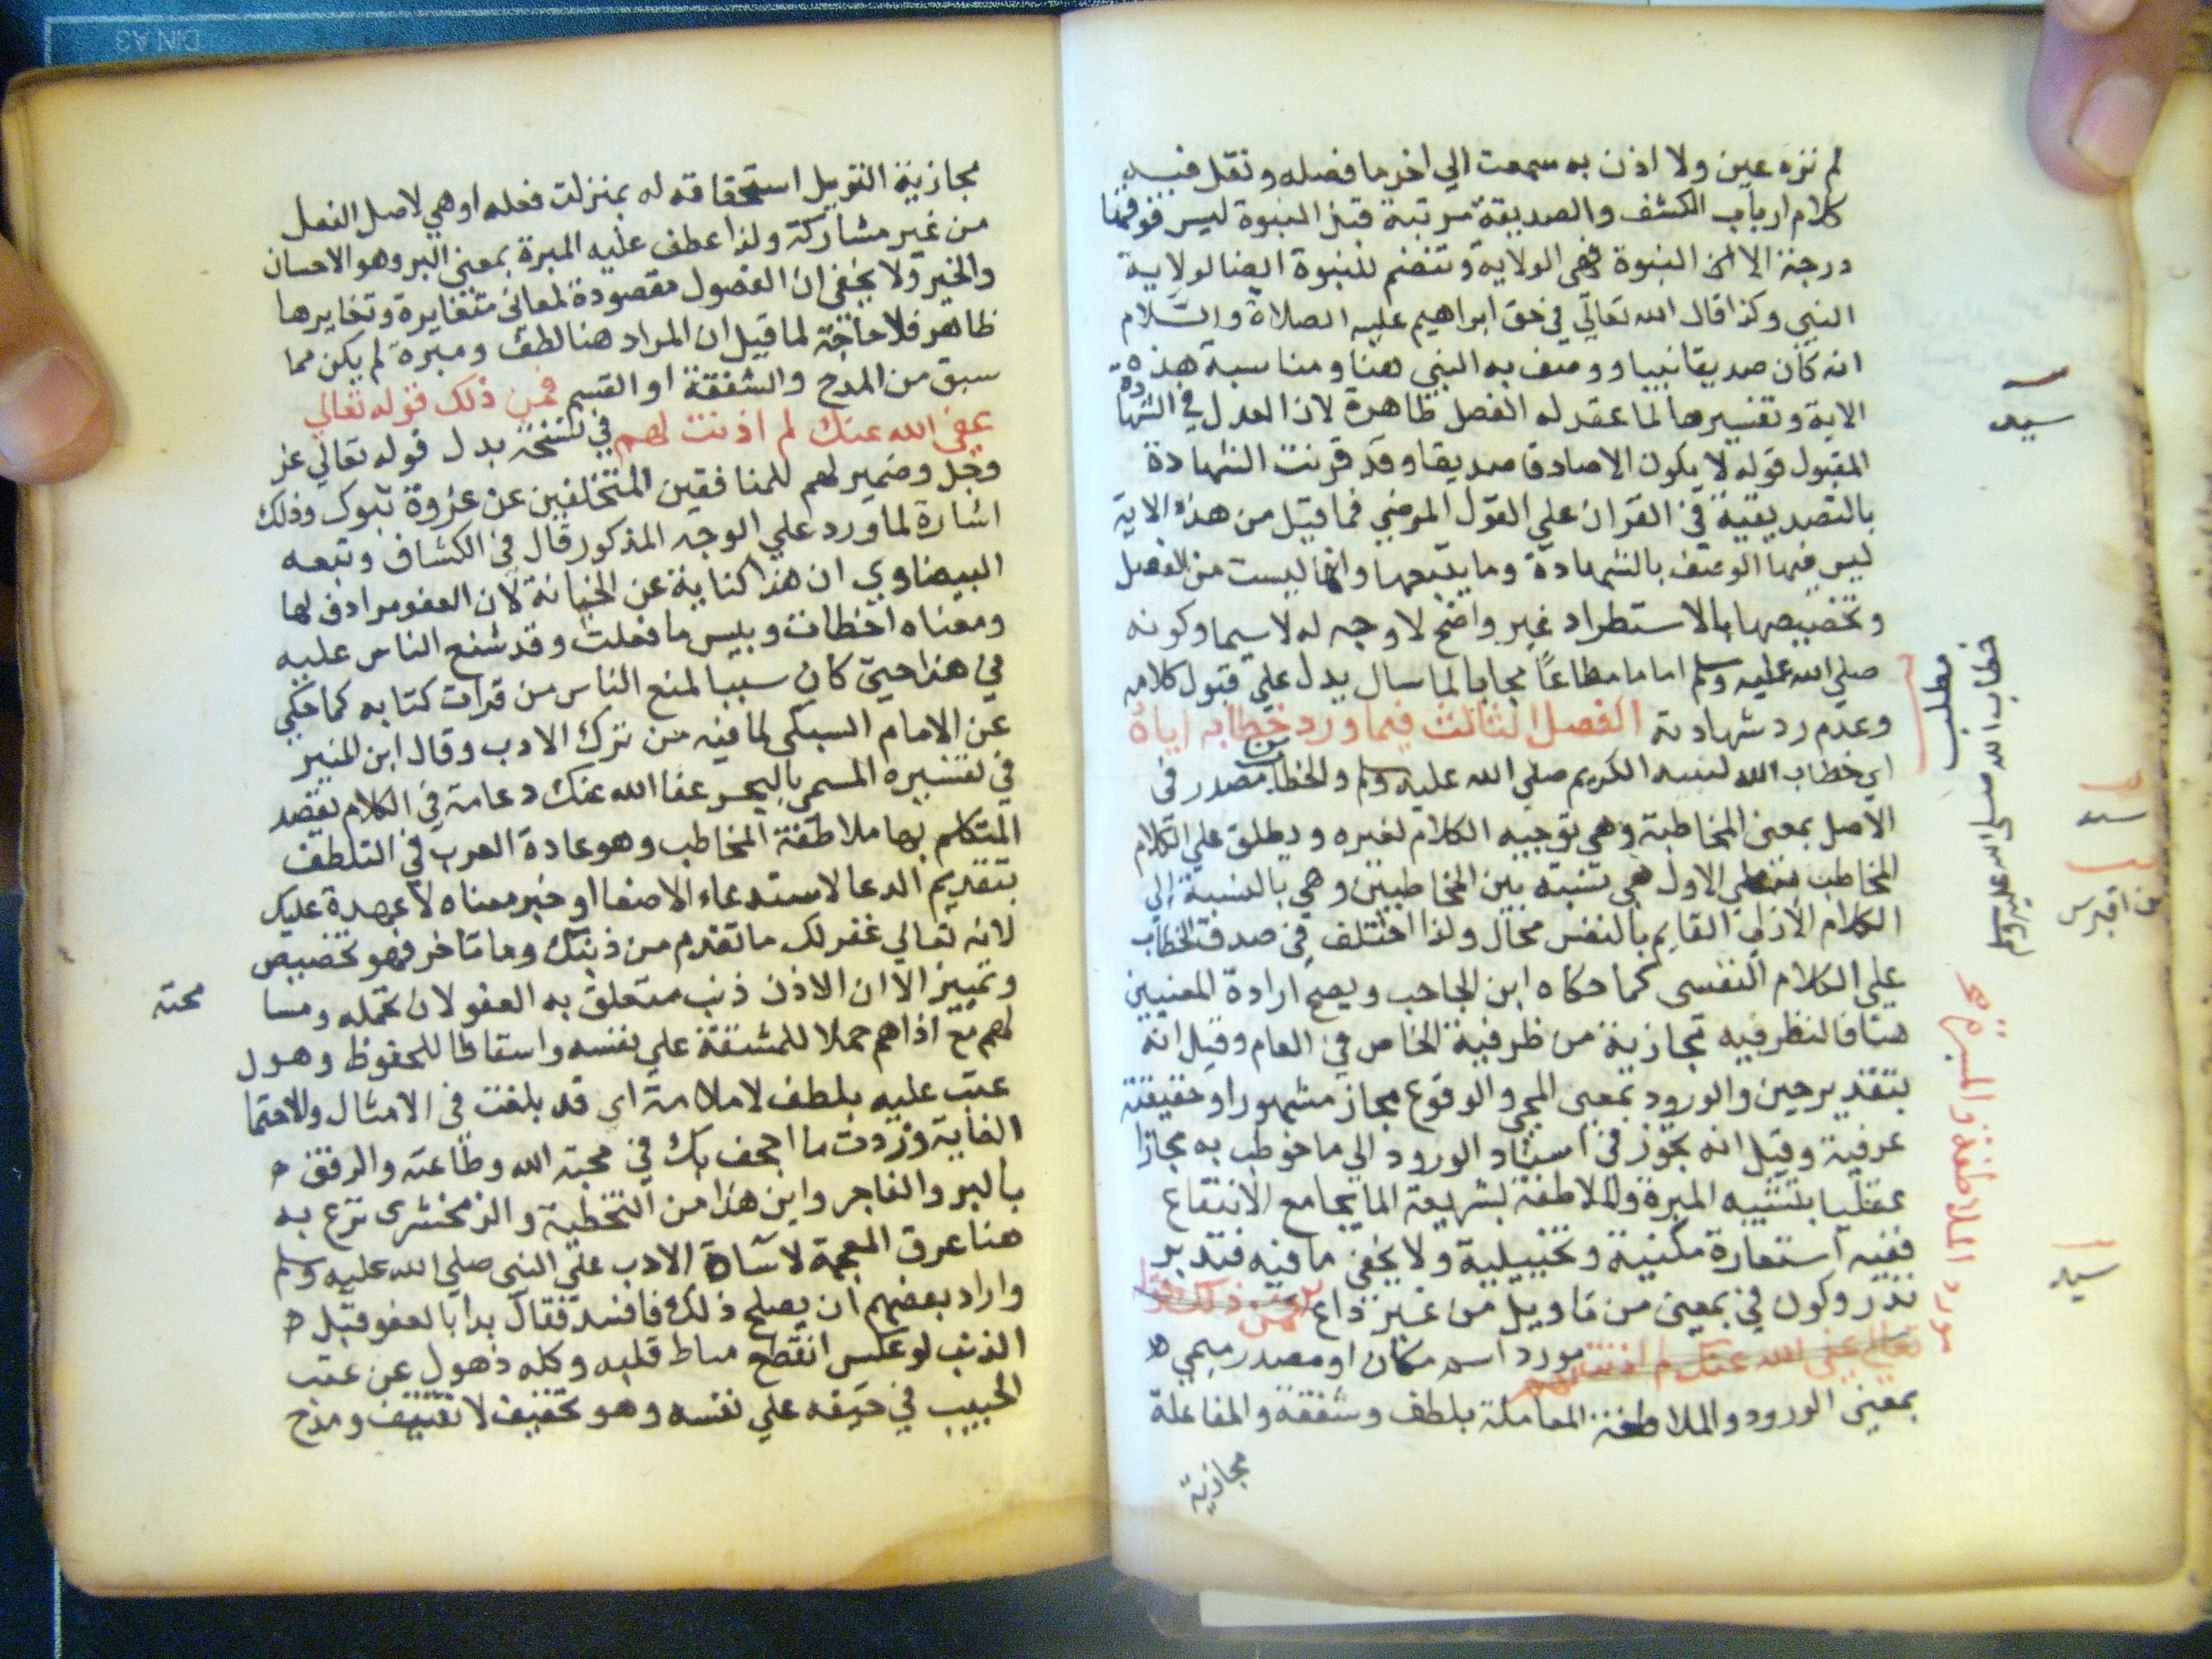 لم تره عين ولا اذن به سمعت الي اخر ما فصله ونقل فيه
كلام ارباب الكشف والصديقة مرتبة قبل النبوة ليس فوقها
درجة الا النبوة فهي الولاية وتنضم للنبوة ايضا لولاية
النبي وكذا قال الله تعالي في حق ابراهيم عليه الصلاة والسلام
انه كان صديقا نبيا ووصف به النبي هنا ومناسبة هذه
الاية وتفسيرها لما عقد له الفصل ظاهرة لان العدل في الشهادة
المقبول قوله لا يكون الا صادقا صديقا وقد قرنت الشهادة
بالتصديقية في القران علي القول المرضي فما قيل من هذه الاية
ليس فيها الوصف بالشهادة وما يتبعها وانها ليست من الفصل
وتخصيصها بالاستطراد غير واضح لا وجه له لاسيما وكونه
صلي الله عليه وسلم اماما مطاعا مجابا لما سال يدل علي قبول كلامه
وعدم رد شهادته الفصل الثالث فيما ورد خطابه اياه
اي خطاب الله لنبيه الكريم صلي الله عليه وسلم والخطاب مصدر في
الاصل بمعني المخاطبة وهي توجيه الكلام لغيره ويطلق علي الكلام
المخاطب فعلي الاول هي نسبة بين المخاطبين وهي بالنسبة الي
الكلام الازلي القايم بالنفس محال ولذا اختلف في صدق الخطاب
علي الكلام النفسي كما حكاه ابن الحاجب ويصح ارادة المعنيين
هنا فالنظر فيه تجازية من ظرفية الخاص في العام وقيل انه
بتقدير حين والورود بمعني المجي والوقوع مجاز مشهور او حقيقة
عرفية وقيل انه يجوز في اسناد الورود الي ما خوطب به مجازا
عقليا بتشبيه المبرة والملاطفة بشريعة الما بجامع الانتفاع
ففيه استعارة مكنية وتخييلية ولا يخفي ما فيه فتدبر
وكون في بمعني من تاويل من غير داع فمن ذلك قوله
تعالي عفي الله عنك لم اذنت لهم مورد اسم مكان او مصدر ميمي
بمعني الورود والملاطفة المعاملة بلطف وشفقة والمفاعلة
مجازية
سيد
مطلب
خطاب الله صلي الله عليه وسلم
مورد الملاطفة والمبرة
سيد
مجازية التنزيل استحقاقه له بمنزلت فعله او هي لاصل الفعل
من غير مشاركة ولذا عطف عليه المبرة بمعني البر وهو الاحسان
والخير ولا يخفي ان الفصول مقصودة لمعاني متغايرة وتغايرها
ظاهر فلا حاجة لما قيل ان المراد هنا لطف ومبرة لم يكن مما
سبق من المدح والشفقة او القسم فمن ذلك قوله تعالي
عفي الله عنك لم اذنت لهم في نسخة بدل قوله تعالي عز
وجل وضمير لهم للمنافقين المتخلفين عن غزوة تبوك وذلك
اشارة لما ورد علي الوجه المذكور قال في الكشاف وتبعه
البيضاوي ان هذا كناية عن الجناية لان العفو مرادف لها
ومعناه اخطات وبيس ما فعلت وقد شنع الناس عليه
في هذا حتي كان سببا لمنع الناس من قرات كتابه كما حكي
عن الامام السبكي لما فيه من ترك الادب وقال ابن المنير
في تفسيره المسمي بالبحر عفا الله عنك دعامة في الكلام يقصد
المتكلم بها ملاطفة المخاطب وهو عادة العرب في التلطف
بتقديم الدعا لاستدعاء الاصغا او خبر معناه لا عهدة عليك
لانه تعالي غفر لك ما تقدم من ذنبك وما تاخر فهو تخصيص
وتمييز الا ان الاذن ذنب متعلق به العفو لان تحمله ومسا
محته
لهم مع اذاهم حملا للمشقة علي نفسه واسقاطا للحظوظ وهول
عتب عليه بلطف لا ملامة اي قد بلغت في الامتثال والاحتما
الغاية وزدت ما اجحف بك في محبة الله وطاعته والرفق
بالبر والفاجر واين هذا من التخطية والزمخشري نزع به
هنا عرق العجمة لاساة الادب علي النبي صلي الله عليه وسلم
واراد بعضهم ان يصلح ذلك فافسد فقال بدا بالعفو قبل
الذنب لو عكس انقطع مساط قلبه وكله ذهول عن عتب
الحبيب في حيفه علي نفسه وهو تخفيف لا تعنيف ومدح